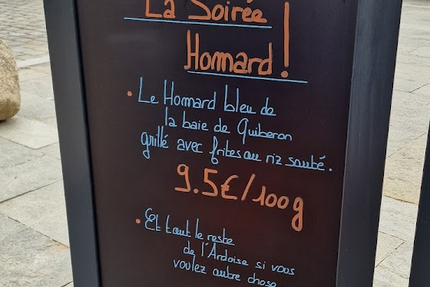 La Soirée
Homard !
• Le Homard bleu de
la baie de Quiberon
grillé avec frites ou riz sauté.
9.5€/100g
• Et tout le reste
de l'Ardoise si vous
voulez autre chose